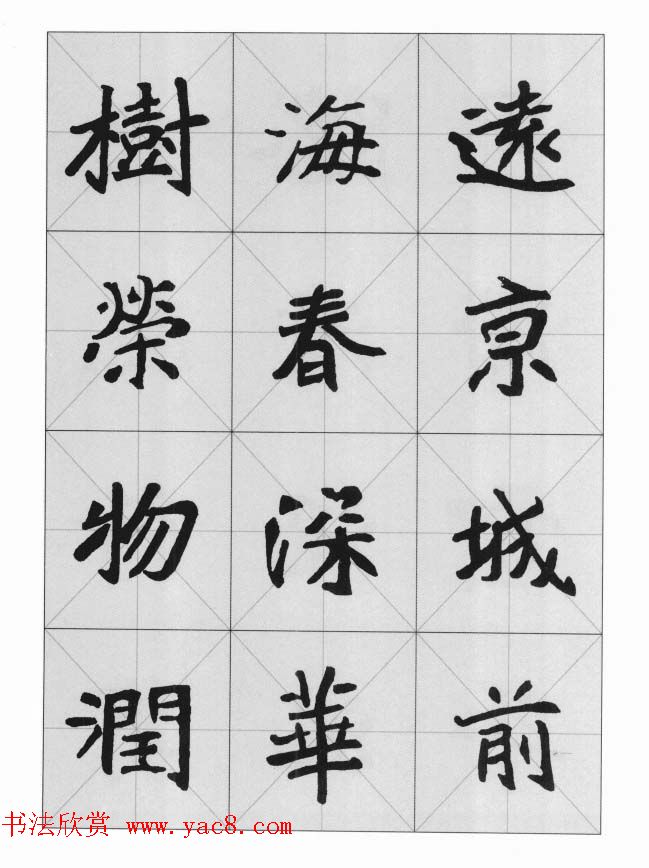 遠京城前
海春深華
樹榮物潤
书法欣赏 www.yac8.com